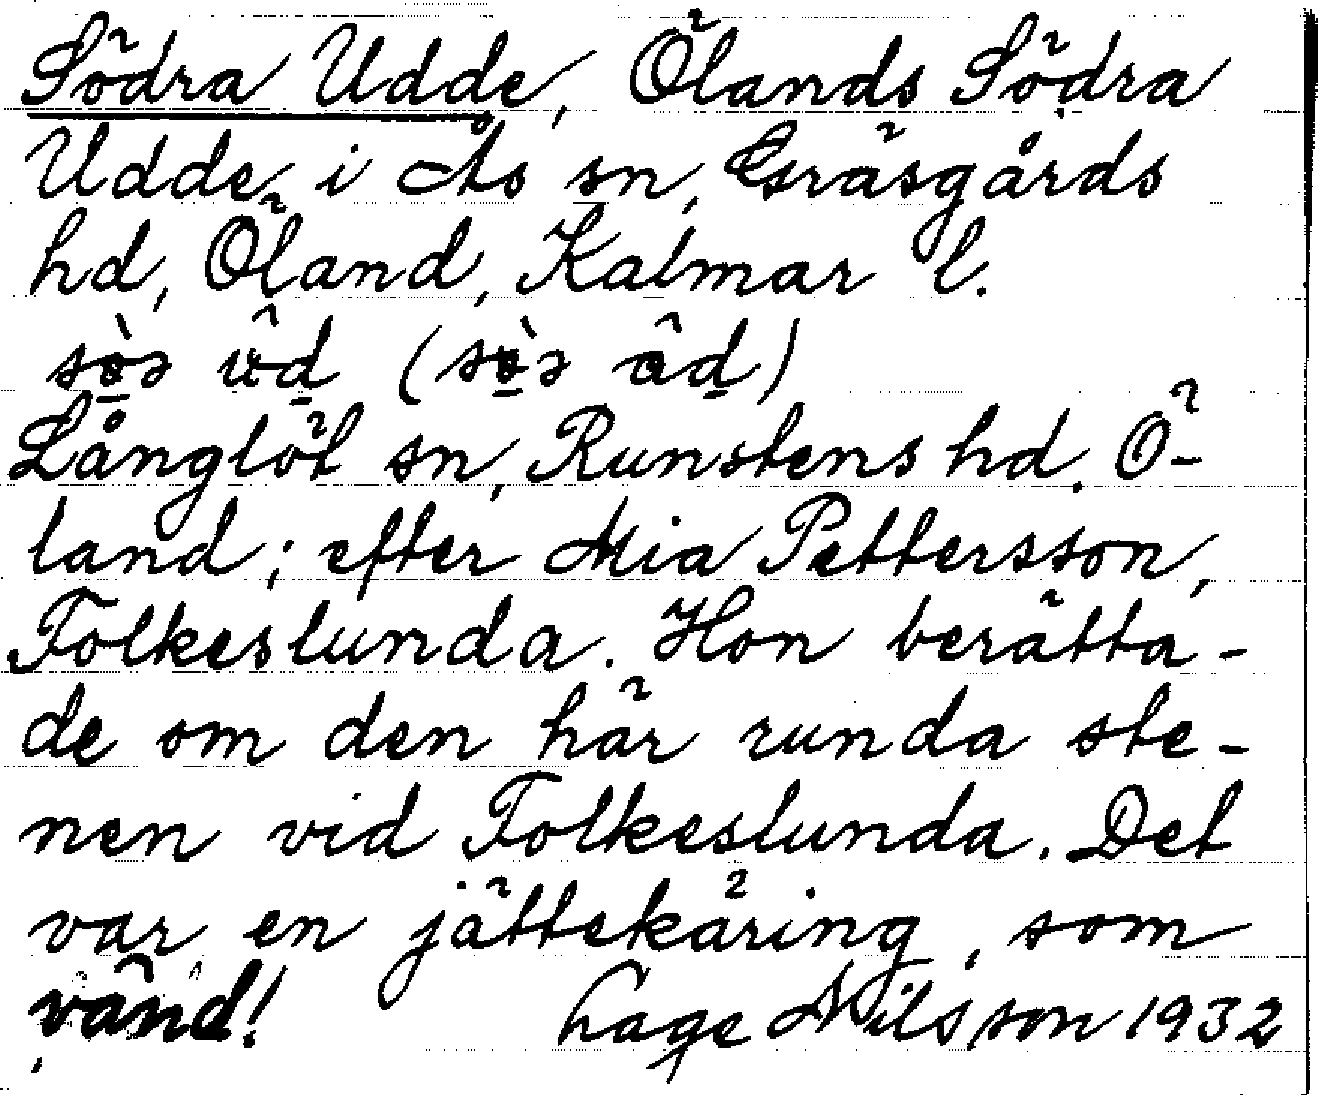 Södra Udde, Ölands Södra
Udde, i Ås sn, Gräsgårds
hd, Öland, Kalmar l.
Långlöt sn, Runstens hd. Ö-
land; efter Mia Pettersson,
Folkeslunda. Hon berätta-
de om den här runda ste-
nen vid Folkeslunda. Det
var en jättekäring, som
vänd! Lage Nilsson 1932